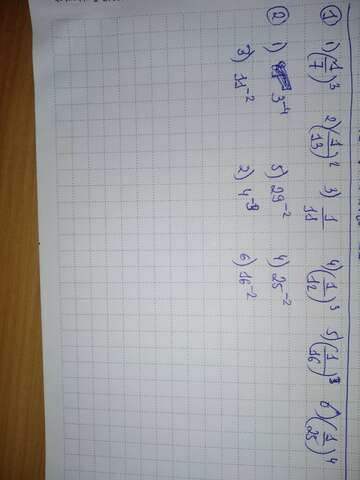 ① 1) (1/7)³ 2) (1/13)² 3) 1/11 4) (1/12)³ 5) (1/16)³ 6) (1/25)⁴
② 1) 3⁻⁴ 5) 29⁻² 4) 25⁻²
3) 11⁻² 2) 4⁻⁹ 6) 16⁻²